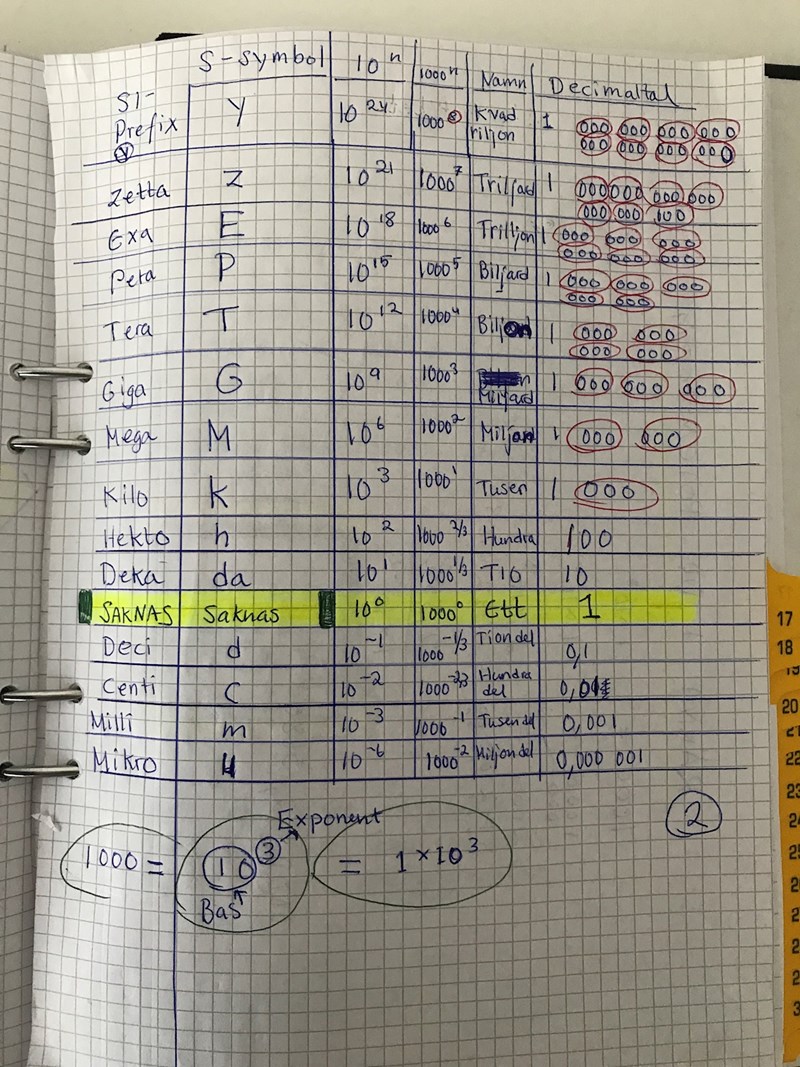 SI-Prefix S-symbol 10ⁿ 1000ⁿ Namn Decimaltal
Y Y 10²⁴ 1000⁸ Kvadriljon 1 000 000 000 000 000 000 000 000
Zetta Z 10²¹ 1000⁷ Triljard 1 000 000 000 000 000 000 000
Exa E 10¹⁸ 1000⁶ Trilljon 1 000 000 000 000 000 000
Peta P 10¹⁵ 1000⁵ Biljard 1 000 000 000 000 000
Tera T 10¹² 1000⁴ Biljon 1 000 000 000 000
Giga G 10⁹ 1000³ Miljard 1 000 000 000
Mega M 10⁶ 1000² Miljon 1 000 000
Kilo k 10³ 1000¹ Tusen 1 000
Hekto h 10² 1000²/³ Hundra 100
Deka da 10¹ 1000¹/³ TIO 10
SAKNAS Saknas 10⁰ 1000⁰ Ett 1
Deci d 10⁻¹ 1000⁻¹/³ Tiondel 0,1
Centi c 10⁻² 1000⁻²/³ Hundradel 0,01
Milli m 10⁻³ 1000⁻¹ Tusendel 0,001
Mikro µ 10⁻⁶ 1000⁻² Miljondel 0,000 001
Exponent
1000 = 10³ = 1×10³
Bas
2
17
18
19
20
21
22
23
24